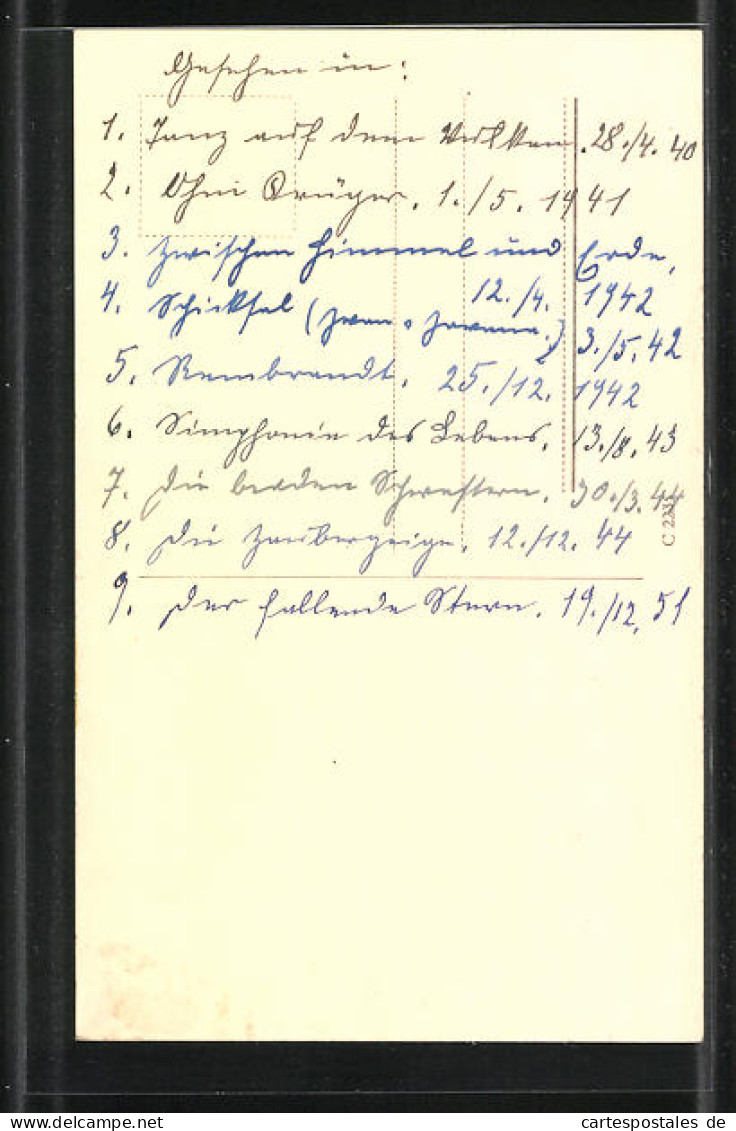 Gesehen in:
1. Tanz auf dem Vulkan. 28./4. 40
2. Ohm Krüger. 1./5. 1941
3. Zwischen Himmel und Erde.
12./4. 1942
4. Schicksal ( ) 3./5. 42
5. Rembrandt. 25./12. 1942
6. Simphonie des Lebens. 13./8. 43
7. Die beiden Schwestern. 30./3. 44
8. Die Zaubergeige. 12./12. 44
9. Der fallende Stern. 19./12. 51
cartespostales de